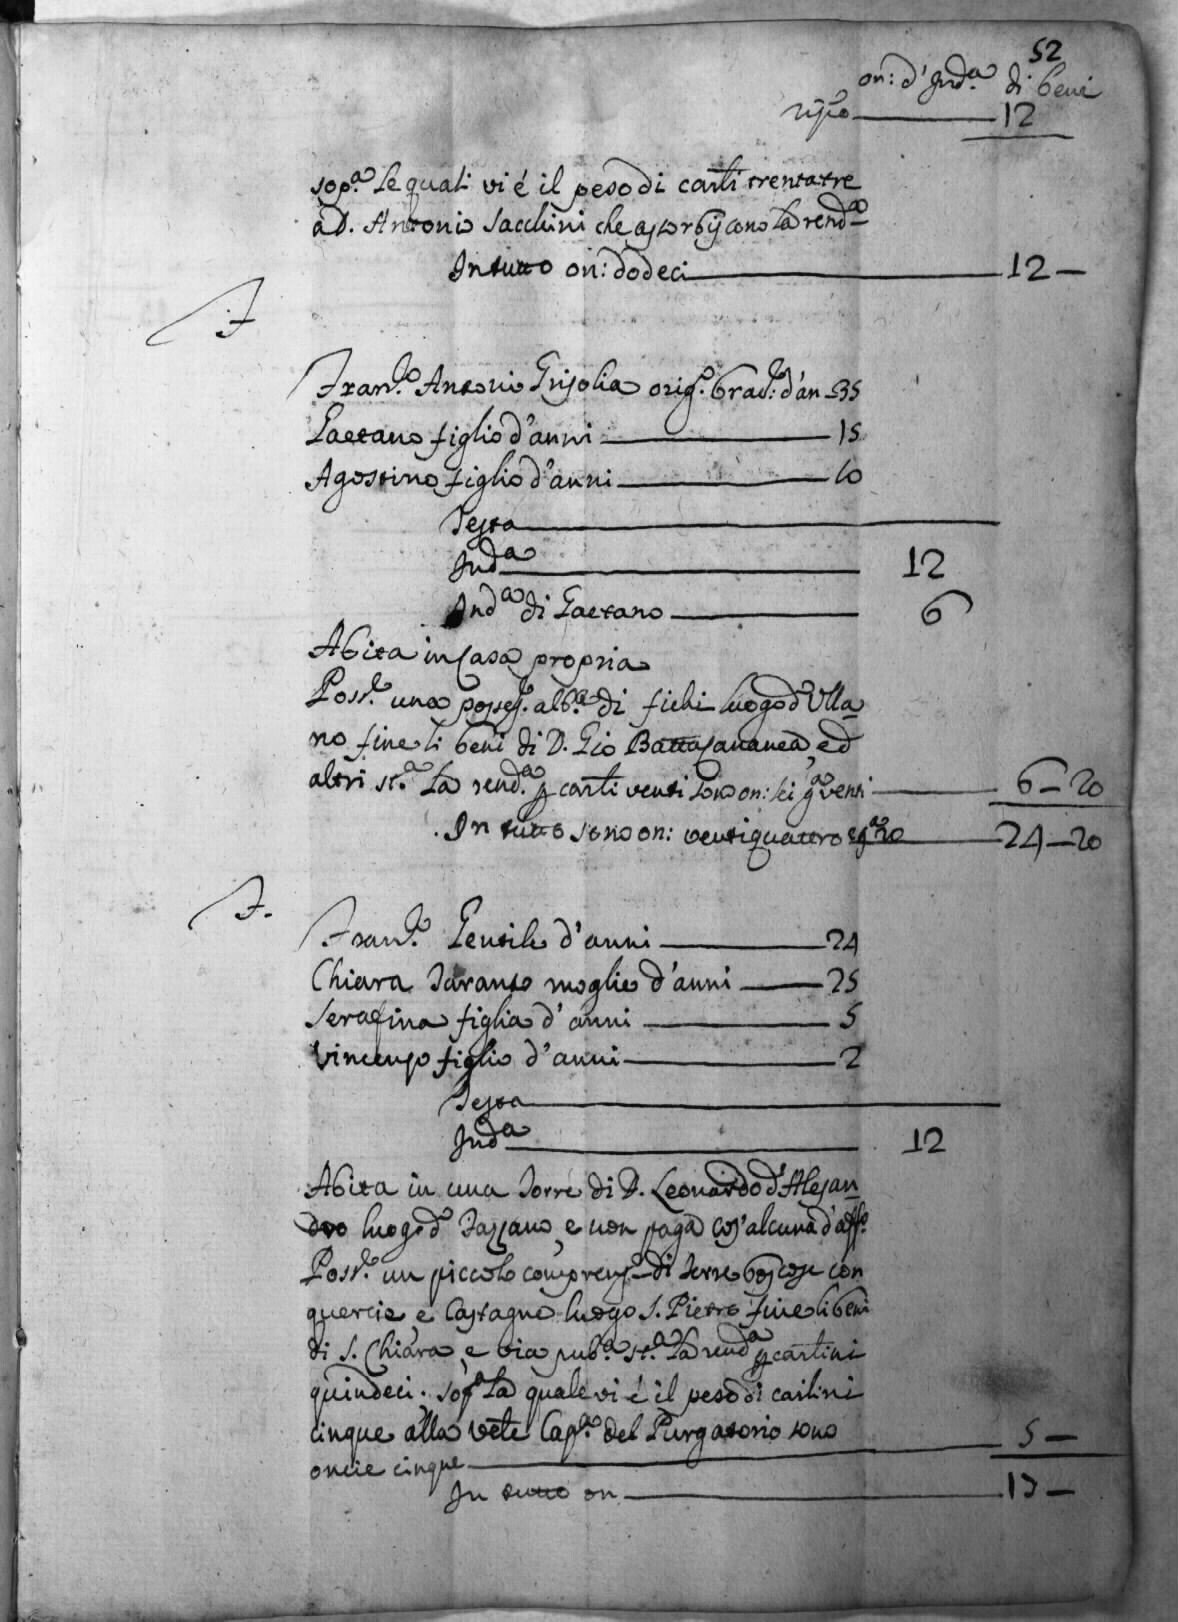 52
on: d'Ind.a di beni
12
sop.a le quali vi é il peso di carli trentatre
a D. Antonio Sacchini che assorbiscono la rend.a
In tutto on: dodeci 12 —
F
Fran.co Antonio Grisolia orig.o brac.le d'an 35
Gaetano figlio d'anni 15
Agostino figlio d'anni 10
Testa
Ind.a 12
Ind.a di Gaetano 6
Abita in casa propria
Poss.e una posses. alb.a di fichi luogo d.o Ulla
no fine li beni di D. Gio Batta ed
altri st.a la rend.a p carli venti sono on: sei q.a venti 6 — 20
In tutto sono on: ventiquattro e q.a 20 24 — 20
F.
Fran.co Gentile d'anni 24
Chiara Taranto moglie d'anni 25
Serafina figlia d'anni 5
Vincenzo figlio d'anni 2
Testa
Ind.a 12
Abita in una Torre di D. Leonardo d'Alesan
dro luogo d.o e non paga cos' alcuna d'aff.o
Poss.e un piccolo comprens. di terre boscose con
quercie, e Castagne luogo S. Pietro fine li beni
di S. Chiara, e via pub.a st.a la rend.a p carlini
quindeci. sop.a la quale vi é il peso di carlini
cinque alla Cap.a del Purgatorio sono
oncie cinque 5 —
In tutto on 17 —